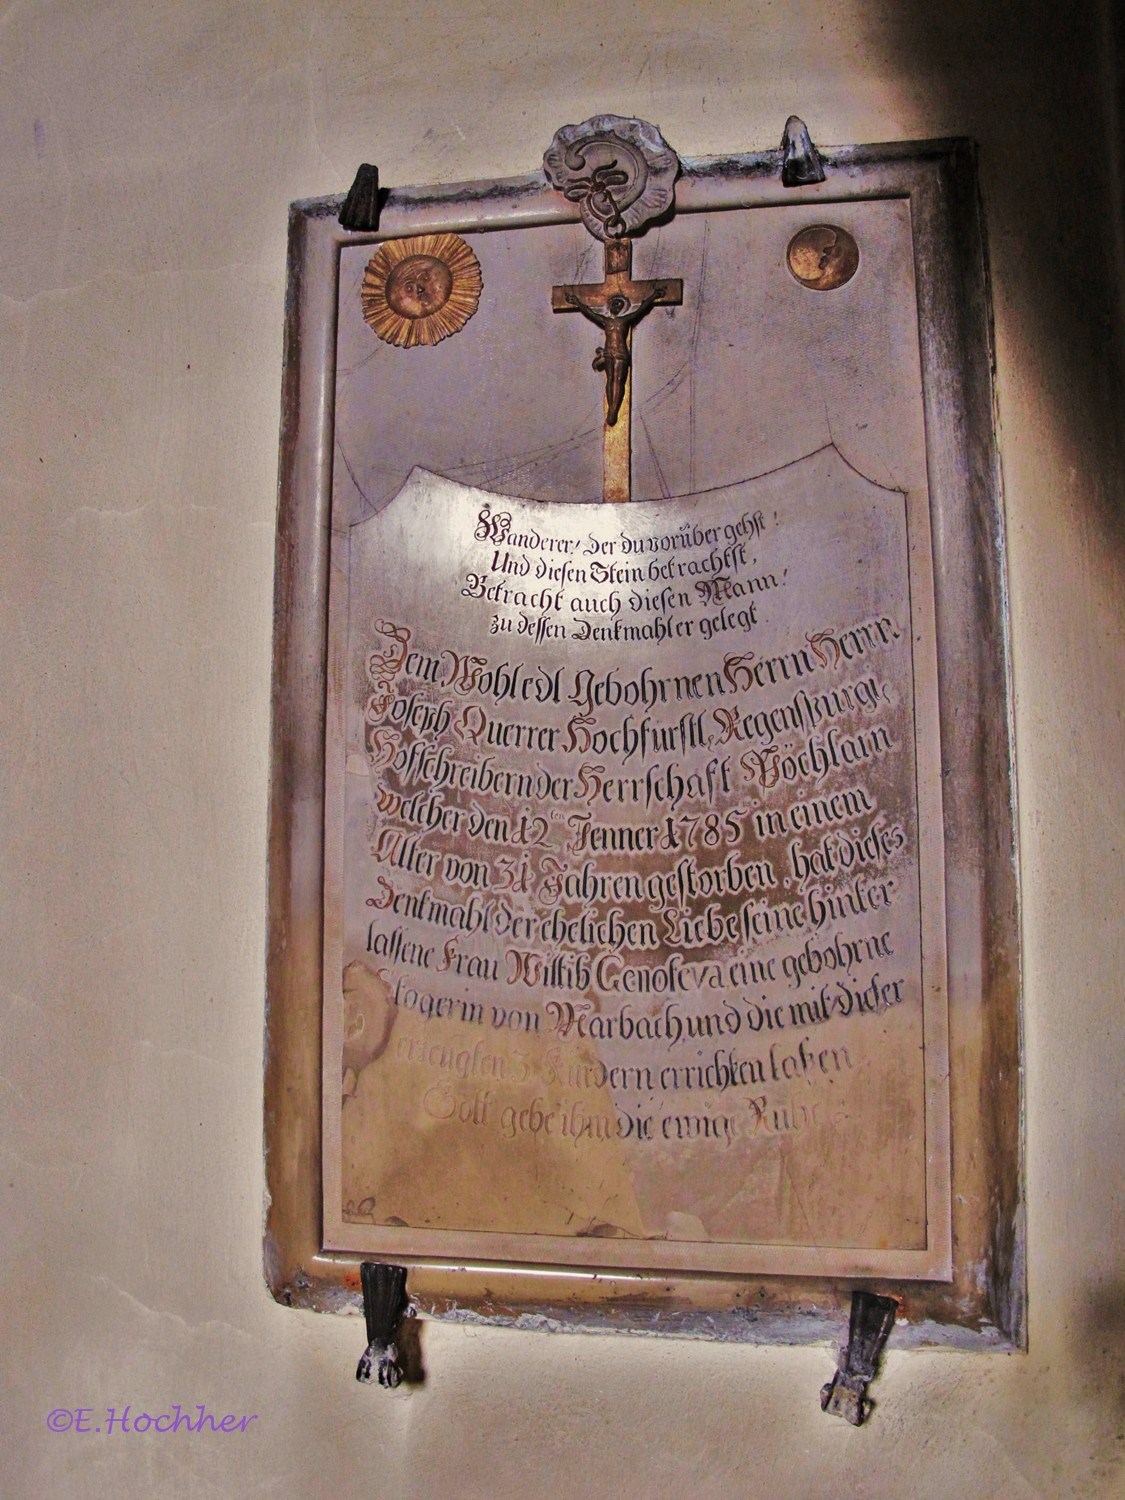 Wanderer! der du vorüber gehst!
Und diesen Stein betrachtst,
Betracht auch diesen Mann!
zu dessen Denkmahl er gelegt.
Dem Wohledl Gebohrnen Herrn Herrn
Joseph Querrer Hochfürstl. Regenspurgl.
Hofschreibern der Herrschaft Pöchlarn
welcher den 12ten Jenner 1785 in einem
Alter von 34 Jahren gestorben, hat dieses
Denkmahl der ehelichen Liebe seine hinter
lassene Frau Wittib Genofeva eine gebohrne
von Marbach, und die mit dieser
erzeugten 3 Kindern errichten lassen
Gott gebe ihm die ewige Ruhe
©E.Hochher